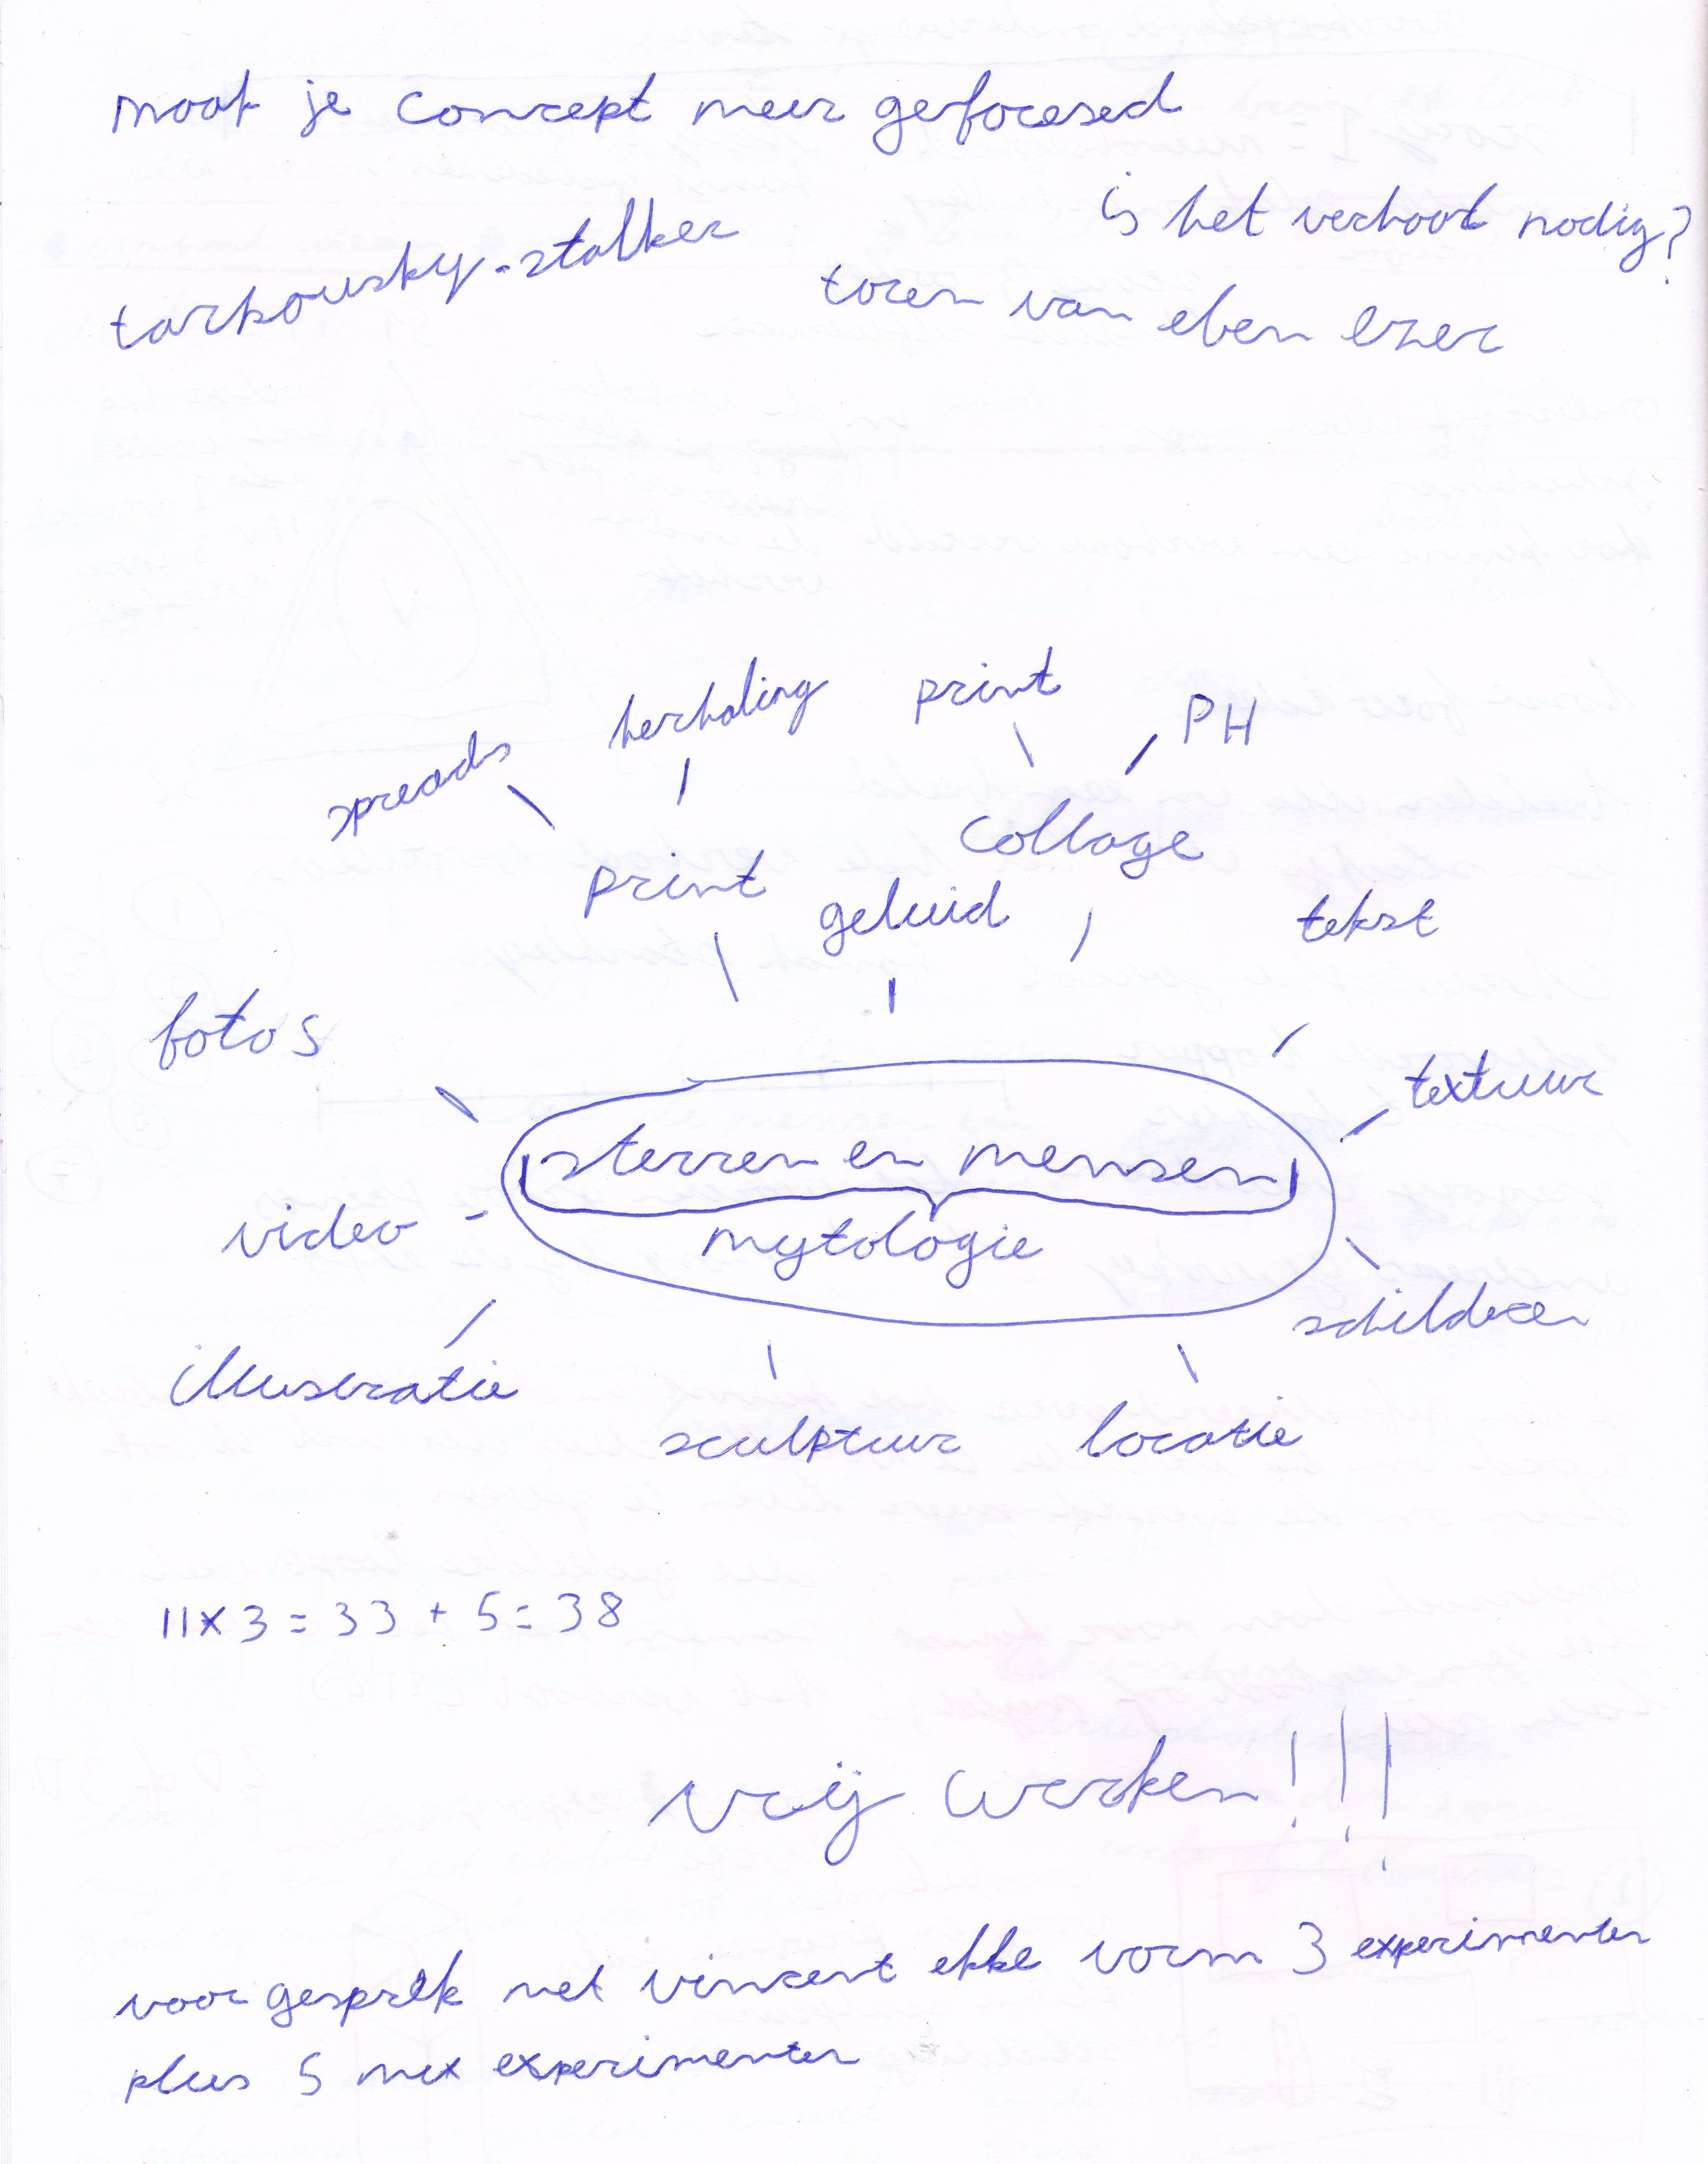 maak je concept meer gefocesed
is het verhaal nodig?
tarkovsky-stalker
toren van eben ezer
herhaling
print
PH
spreads
collage
print
geluid
tekst
fotos
textuur
sterren en mensen
video
mytologie
schilderen
illustratie
sculptuur
locatie
11x3=33 + 5=38
vrij werken!!!
voor gesprek met vincent elke vorm 3 experimenten
plus 5 mix experimenten